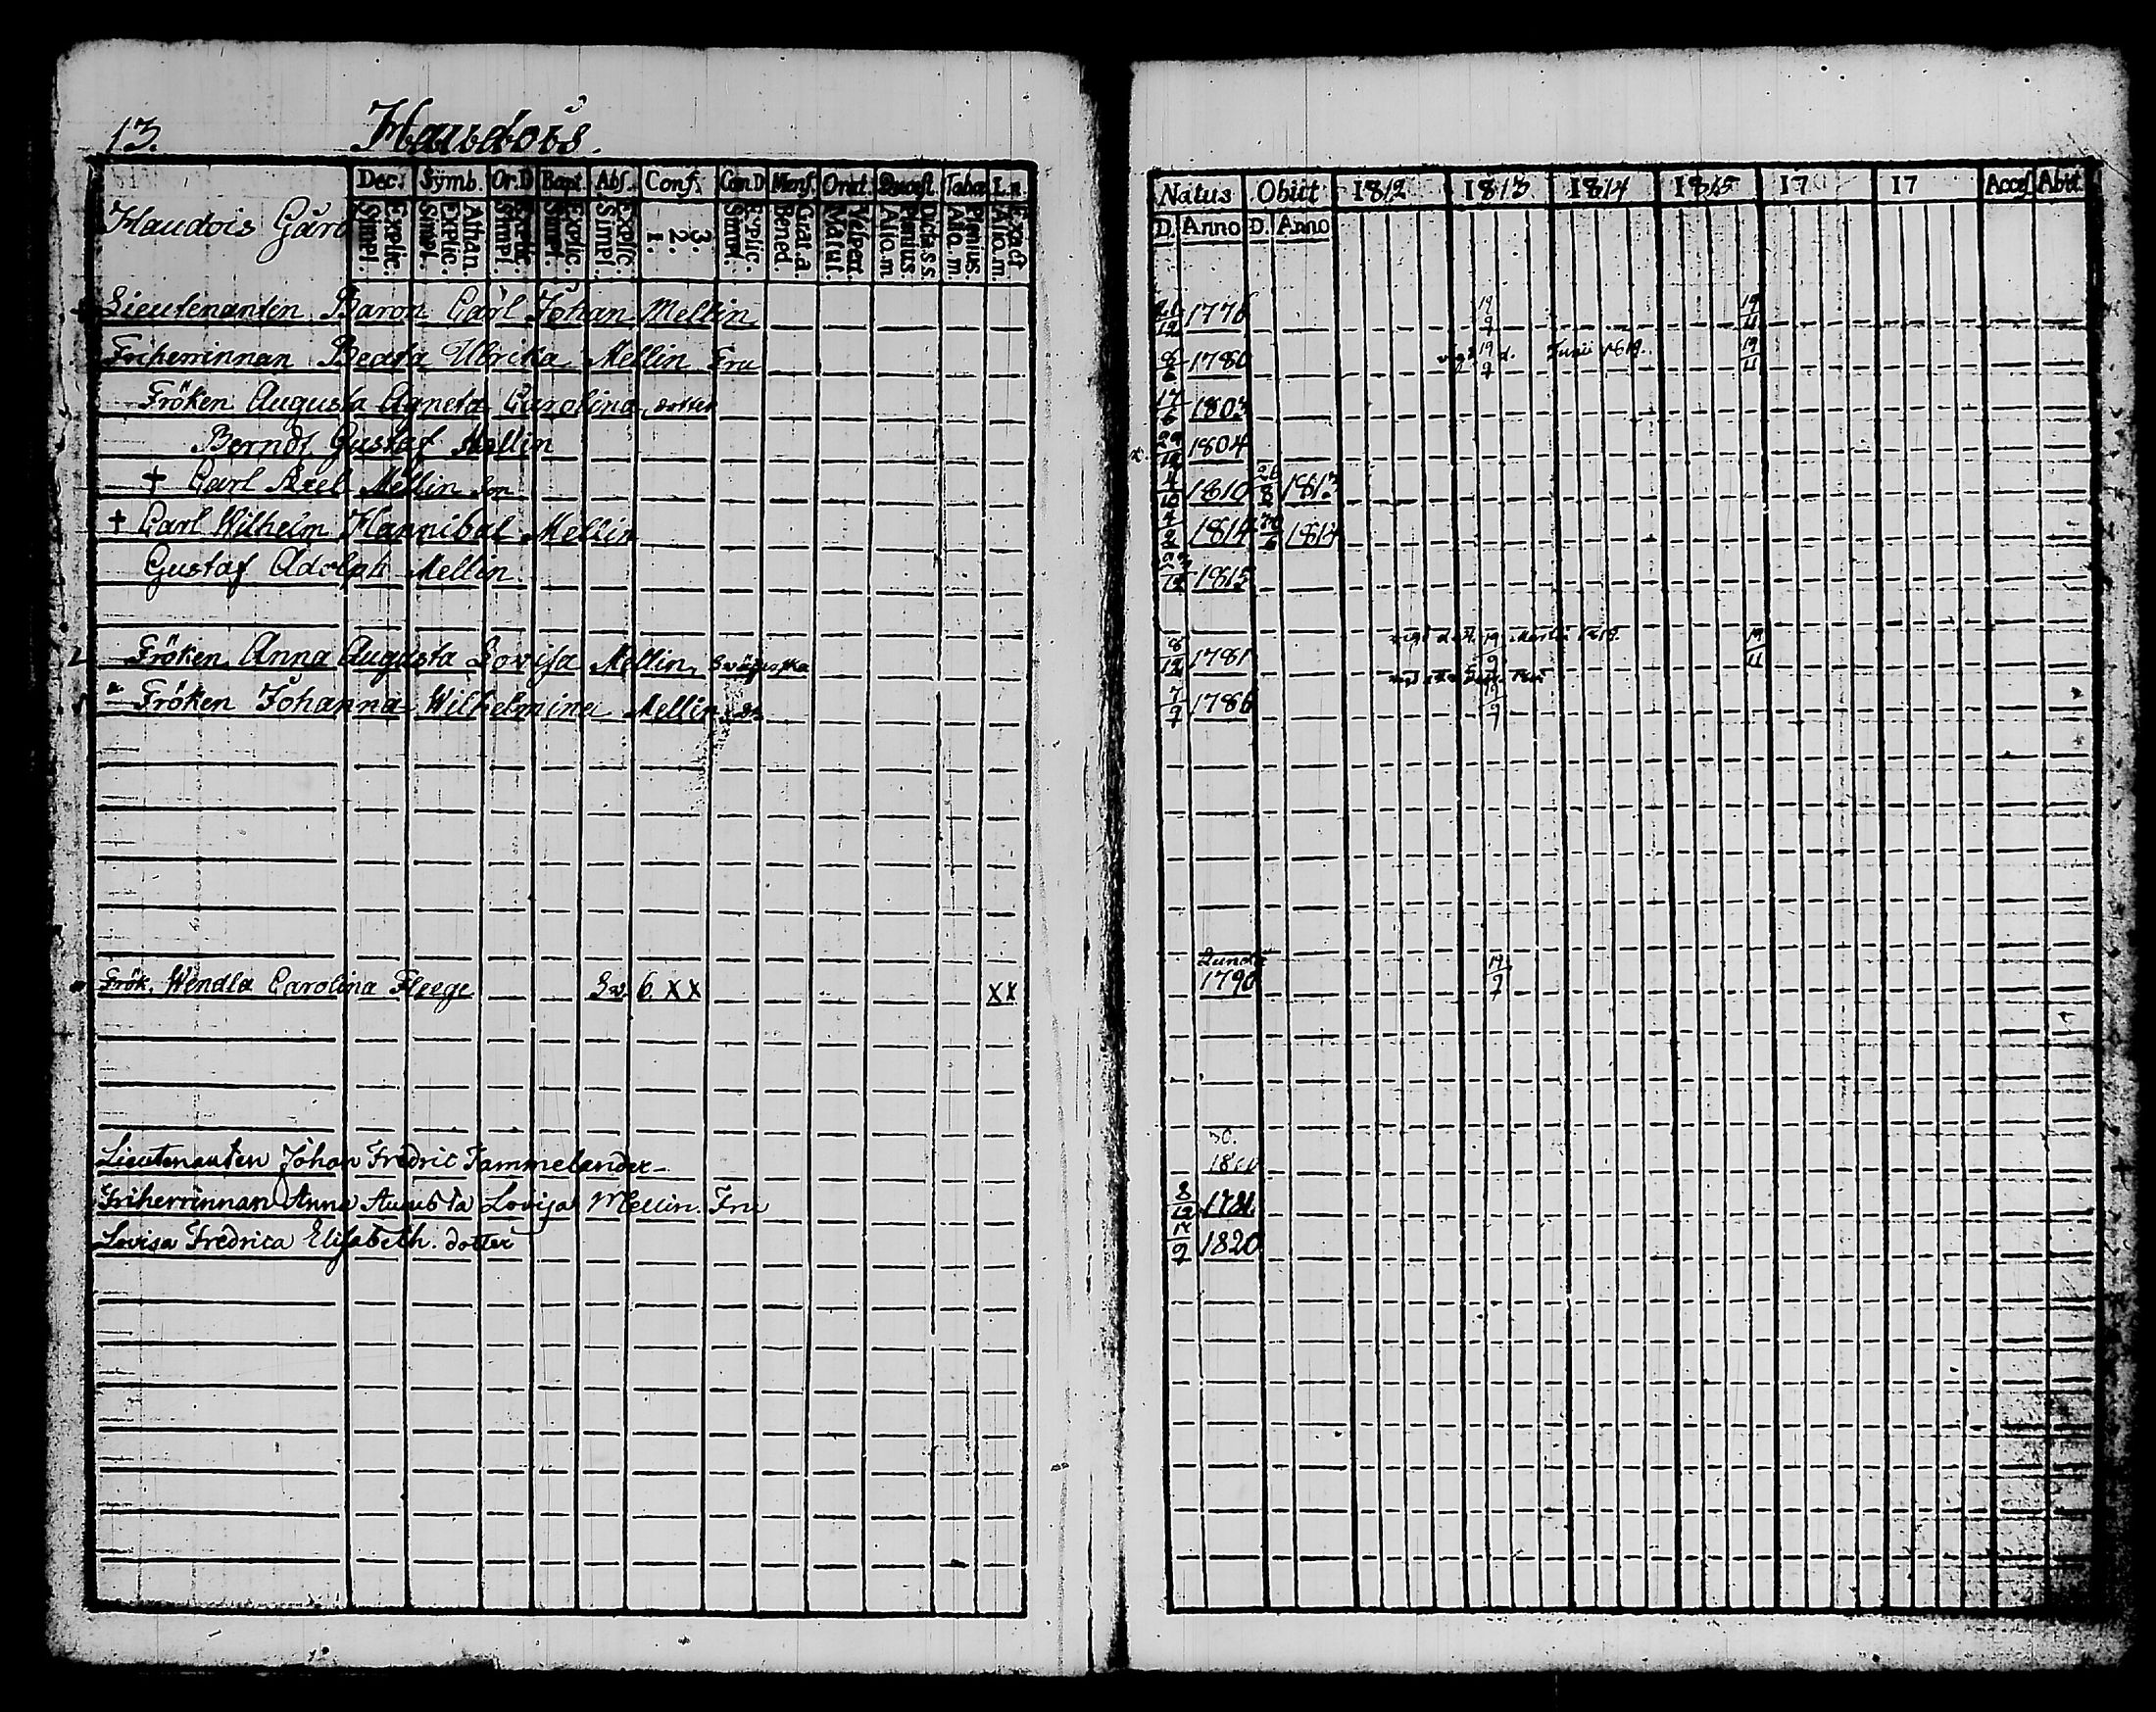 13. Haudois.
Dec. Symb. Or.D Bapt. Abs. Conf. Cœn.D Mens. Orat. Quæst. Tabæ L.n.
Haudois Gård
Simpl. Explic. Simpl. Explic. Athan. Simpl. Explic. Simpl. Explic. Simpl. Explic. 1. 2. 3. Simpl. Explic. Bened. Grat.a. Matut. Vespert. Alio.m Plenius Dicta s.s. Alio.m. Plenius Alio.m. Exact
Natus Obiit 1812 1813 1814 1815 17 17 Acces. Abit.
D. Anno D. Anno
Lieutenanten Baron Carl Johan Mellin 21/12 1776 19/9 19/11
Friherrinnan Beata Ulrika Mellin Fru 8/6 1780 19/9 Junii 19/11
Fröken Augusta Agneta Carolina, dotter 17/6 1803
Berndt Gustaf Mellin 29/12 1804
† Carl Axel Mellin son 4/10 1810 26/8 1813
† Carl Wilhelm Hannibal Mellin 4/2 1814 30/6 1814
Gustaf Adolph Mellin 23/12 1815
Fröken Anna Augusta Lovisa Mellin, 8/12 1781 19/9 19/11
Fröken Johanna Wilhelmina Mellin 7/7 1786 19/9
Frök. Wendla Carolina Fleege Sv. 6 XX XX 1790 19/9
Lieutenanten Johan Fredric Tammelander
Friherrinnan Anna Augusta Lovisa Mellin. Fru 8/12 1781
Lovisa Fredrica Elisabeth. dotter 14/9 1820